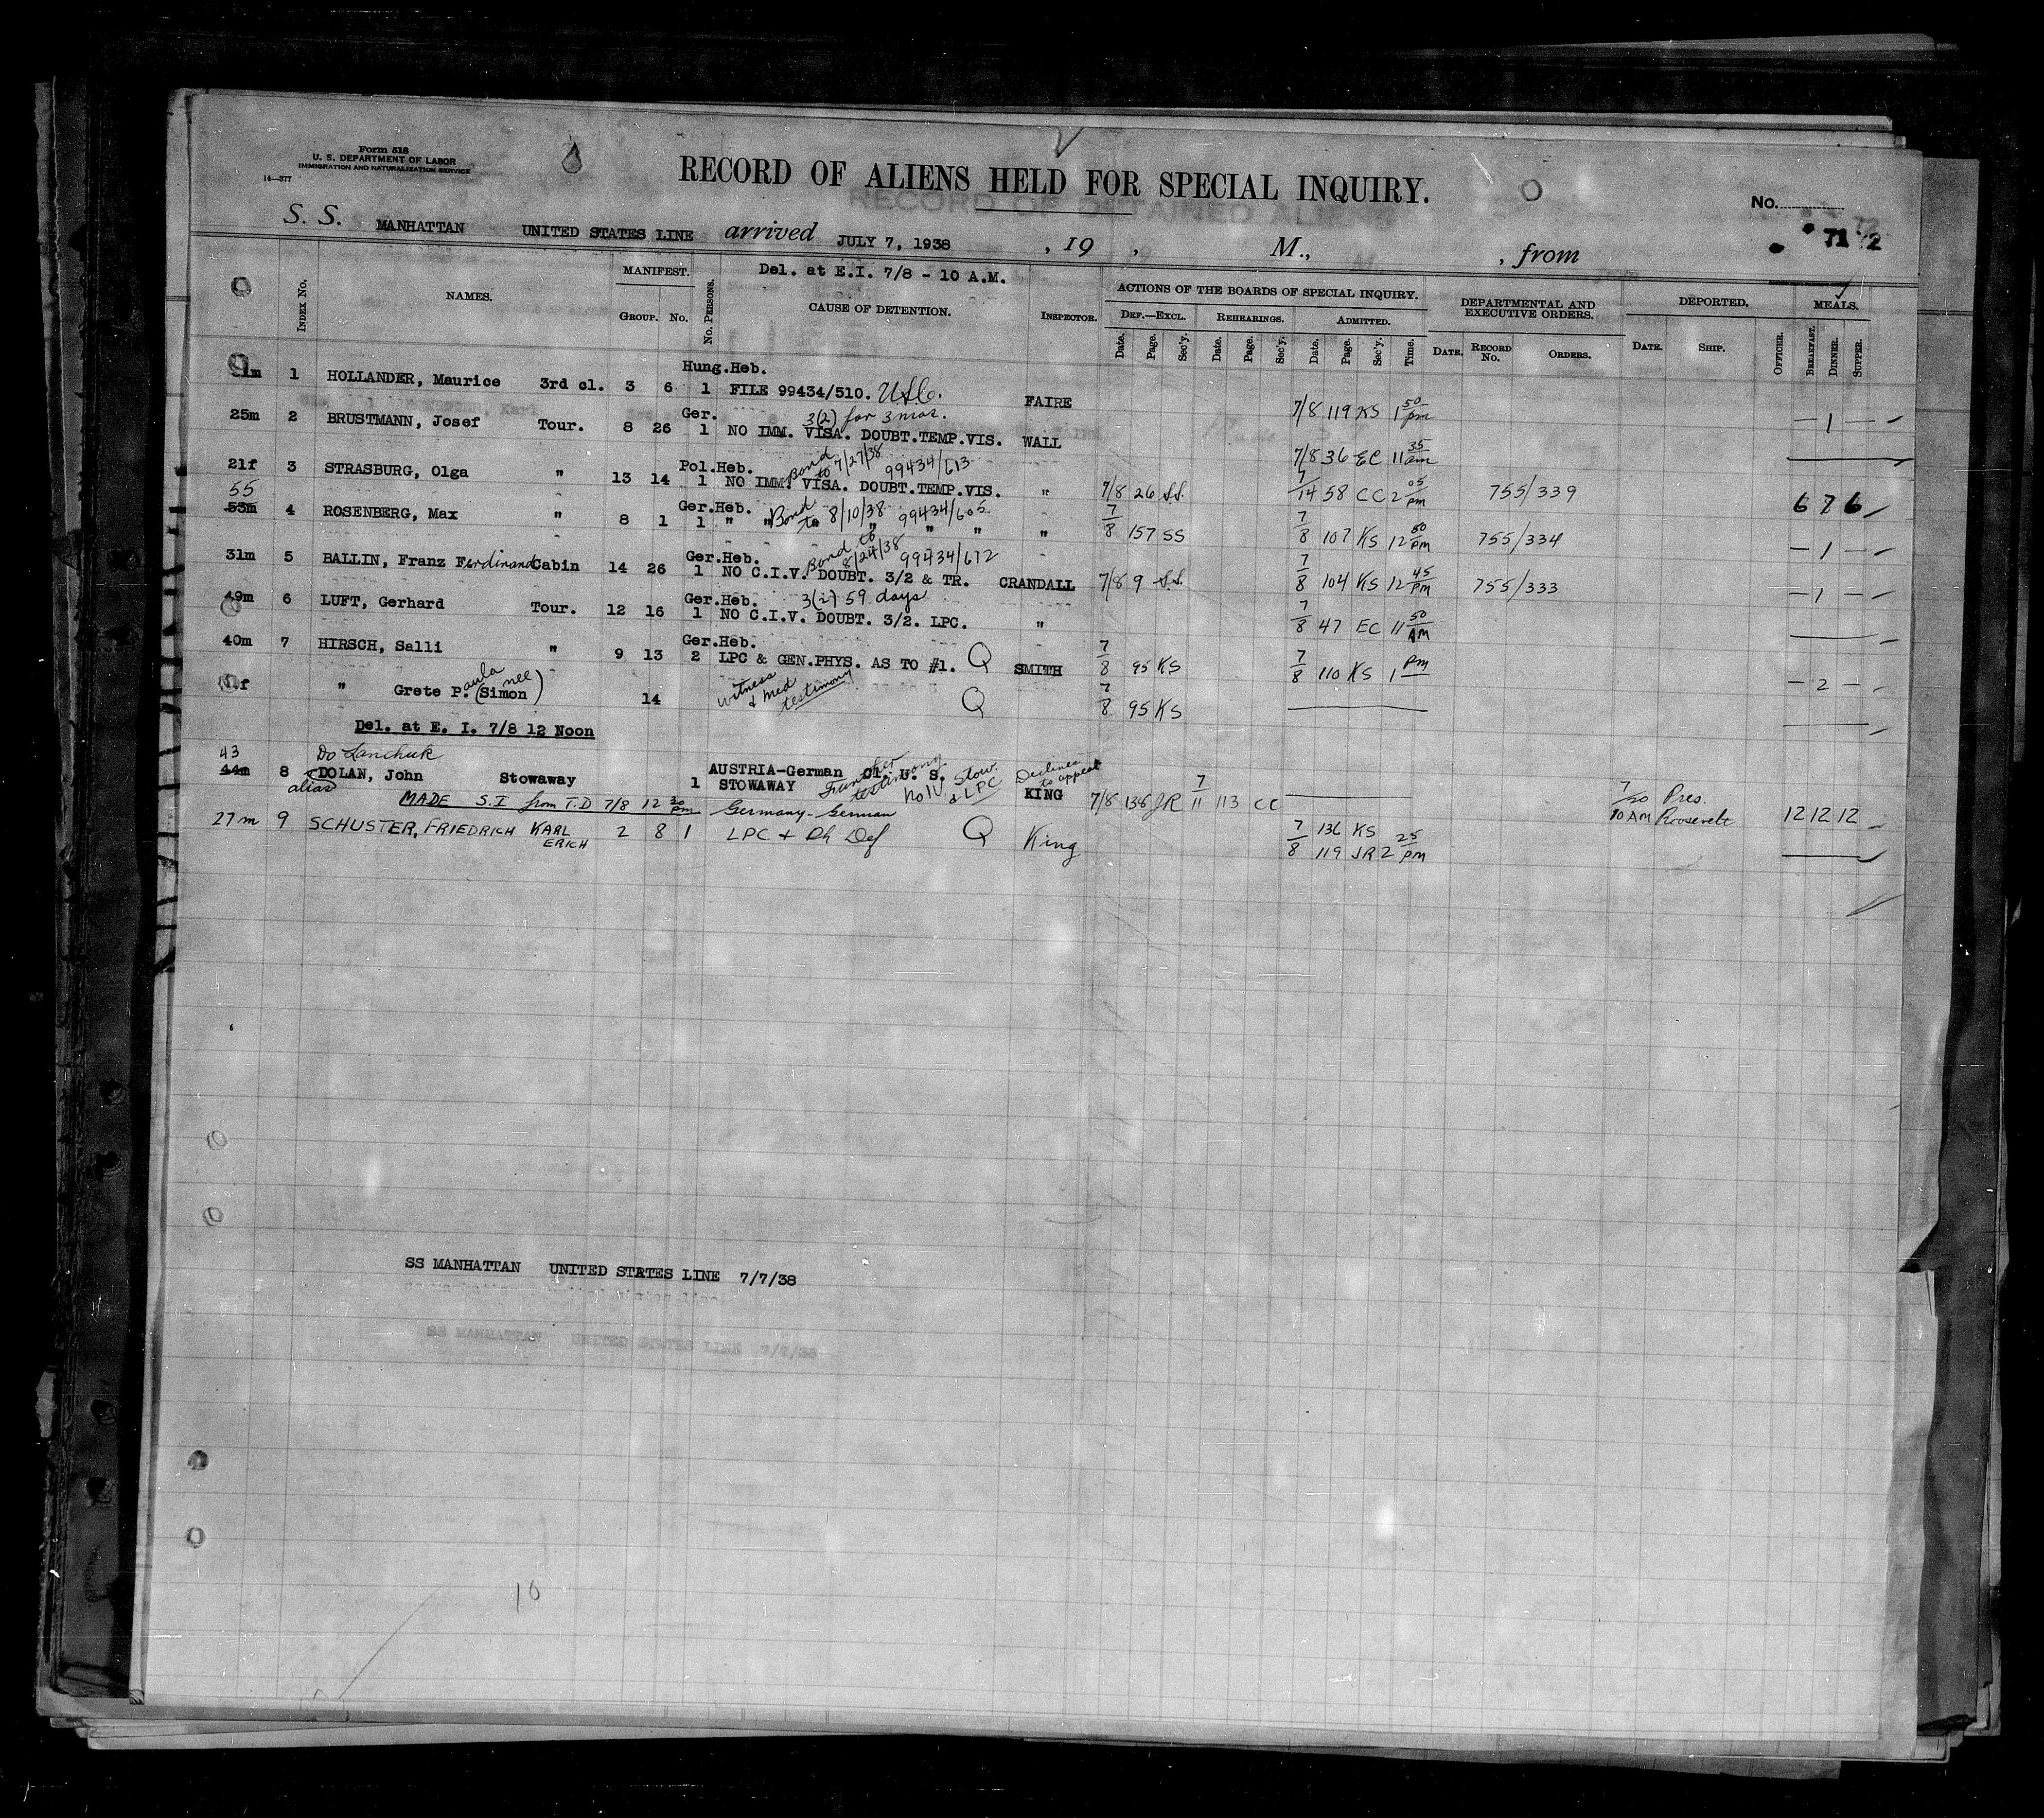 Form 518
U. S. DEPARTMENT OF LABOR
IMMIGRATION AND NATURALIZATION SERVICE
14—377
RECORD OF ALIENS HELD FOR SPECIAL INQUIRY.
No.
71 72
S. S. MANHATTAN UNITED STATES LINE arrived JULY 7, 1938 , 19 , M., , from
INDEX No. NAMES. MANIFEST. GROUP. No. No. PERSONS. Del. at E.I. 7/8 - 10 A.M. CAUSE OF DETENTION. INSPECTOR. ACTIONS OF THE BOARDS OF SPECIAL INQUIRY. DEPARTMENTAL AND EXECUTIVE ORDERS. DEPORTED. MEALS.
DEF.—EXCL. REHEARINGS. ADMITTED.
Date. Page. Sec'y. Date. Page. Sec'y. Date. Page. Sec'y. Time. DATE. RECORD No. ORDERS. DATE. SHIP. OFFICER. BREAKFAST. DINNER. SUPPER.
Hung.Heb.
1 HOLLANDER, Maurice 3rd cl. 3 6 1 FILE 99434/510. U.S.C. FAIRE 7/8 119 KS 1 50 pm — 1 —
Ger. 3(2) for 3 mos.
25m 2 BRUSTMANN, Josef Tour. 8 26 1 NO IMM. VISA. DOUBT.TEMP.VIS. WALL 7/8 36 EC 11 35 am
Pol.Heb. Bond to 7/27/38 99434/613
21f 3 STRASBURG, Olga " 13 14 1 NO IMM. VISA. DOUBT.TEMP.VIS. " 7/8 26 S.S. 7/14 58 CC 2 05 pm 755/339 6 7 6
55
Ger.Heb. Bond to 8/10/38 99434/605
53m 4 ROSENBERG, Max " 8 1 1 " " " " " " 7/8 157 SS 7/8 107 KS 12 50 pm 755/334 — 1 —
Ger.Heb. Bond to 8/24/38 99434/672
31m 5 BALLIN, Franz Ferdinand Cabin 14 26 1 NO C.I.V. DOUBT. 3/2 & TR. CRANDALL 7/8 9 S.S. 7/8 104 KS 12 45 pm 755/333 — 1 —
Ger.Heb. 59 days
49m 6 LUFT, Gerhard Tour. 12 16 1 NO C.I.V. DOUBT. 3/2. LPC. " 7/8 47 EC 11 50 AM
Ger.Heb.
40m 7 HIRSCH, Salli " 9 13 2 LPC & GEN.PHYS. AS TO #1. Q SMITH 7/8 95 KS 7/8 110 KS 1 pm — 2 —
" Grete Paula (nee Simon) 14 witness & med testimony Q 7/8 95 KS
Del. at E. I. 7/8 12 Noon
43 Do Lanchuk
AUSTRIA-German Cl. U. S.
44m 8 alias DOLAN, John Stowaway 1 STOWAWAY Further testimony No IV Stow. & LPC Declines to appeal KING 7/8 136 JR 7/11 113 CC 7/20 10 AM Pres. Roosevelt 12 12 12
MADE S.I from T.D 7/8 12 30 pm Germany-German
27m 9 SCHUSTER, FRIEDRICH KARL ERICH 2 8 1 LPC + Ph Def Q King 7/8 136 KS 119 JR 2 25 pm
SS MANHATTAN UNITED STATES LINE 7/7/38
SS MANHATTAN UNITED STATES LINE 7/7/38
10